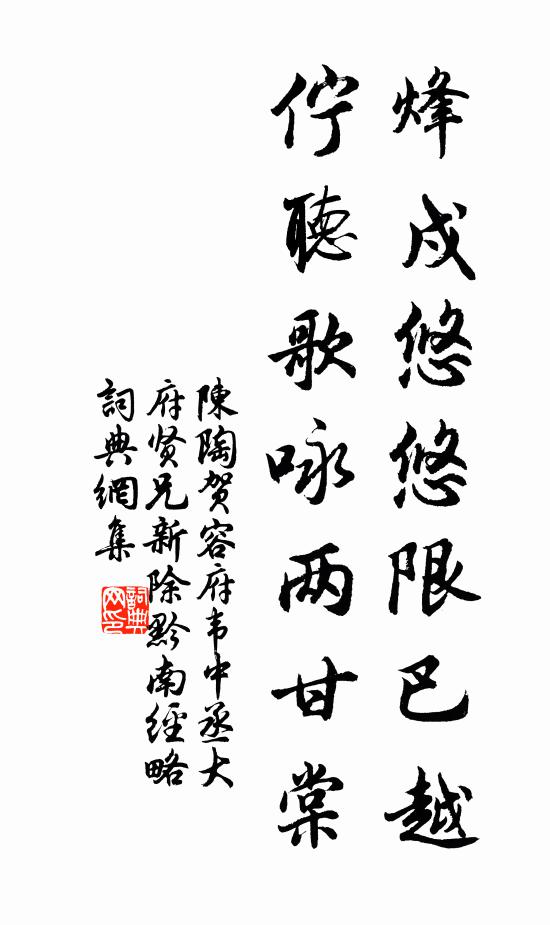 烽戍悠悠限巴越
佇聽歌咏两甘棠
陳陶贺容府韦中丞大
府贤兄新除黔南經略
詞典網集
詞典网印